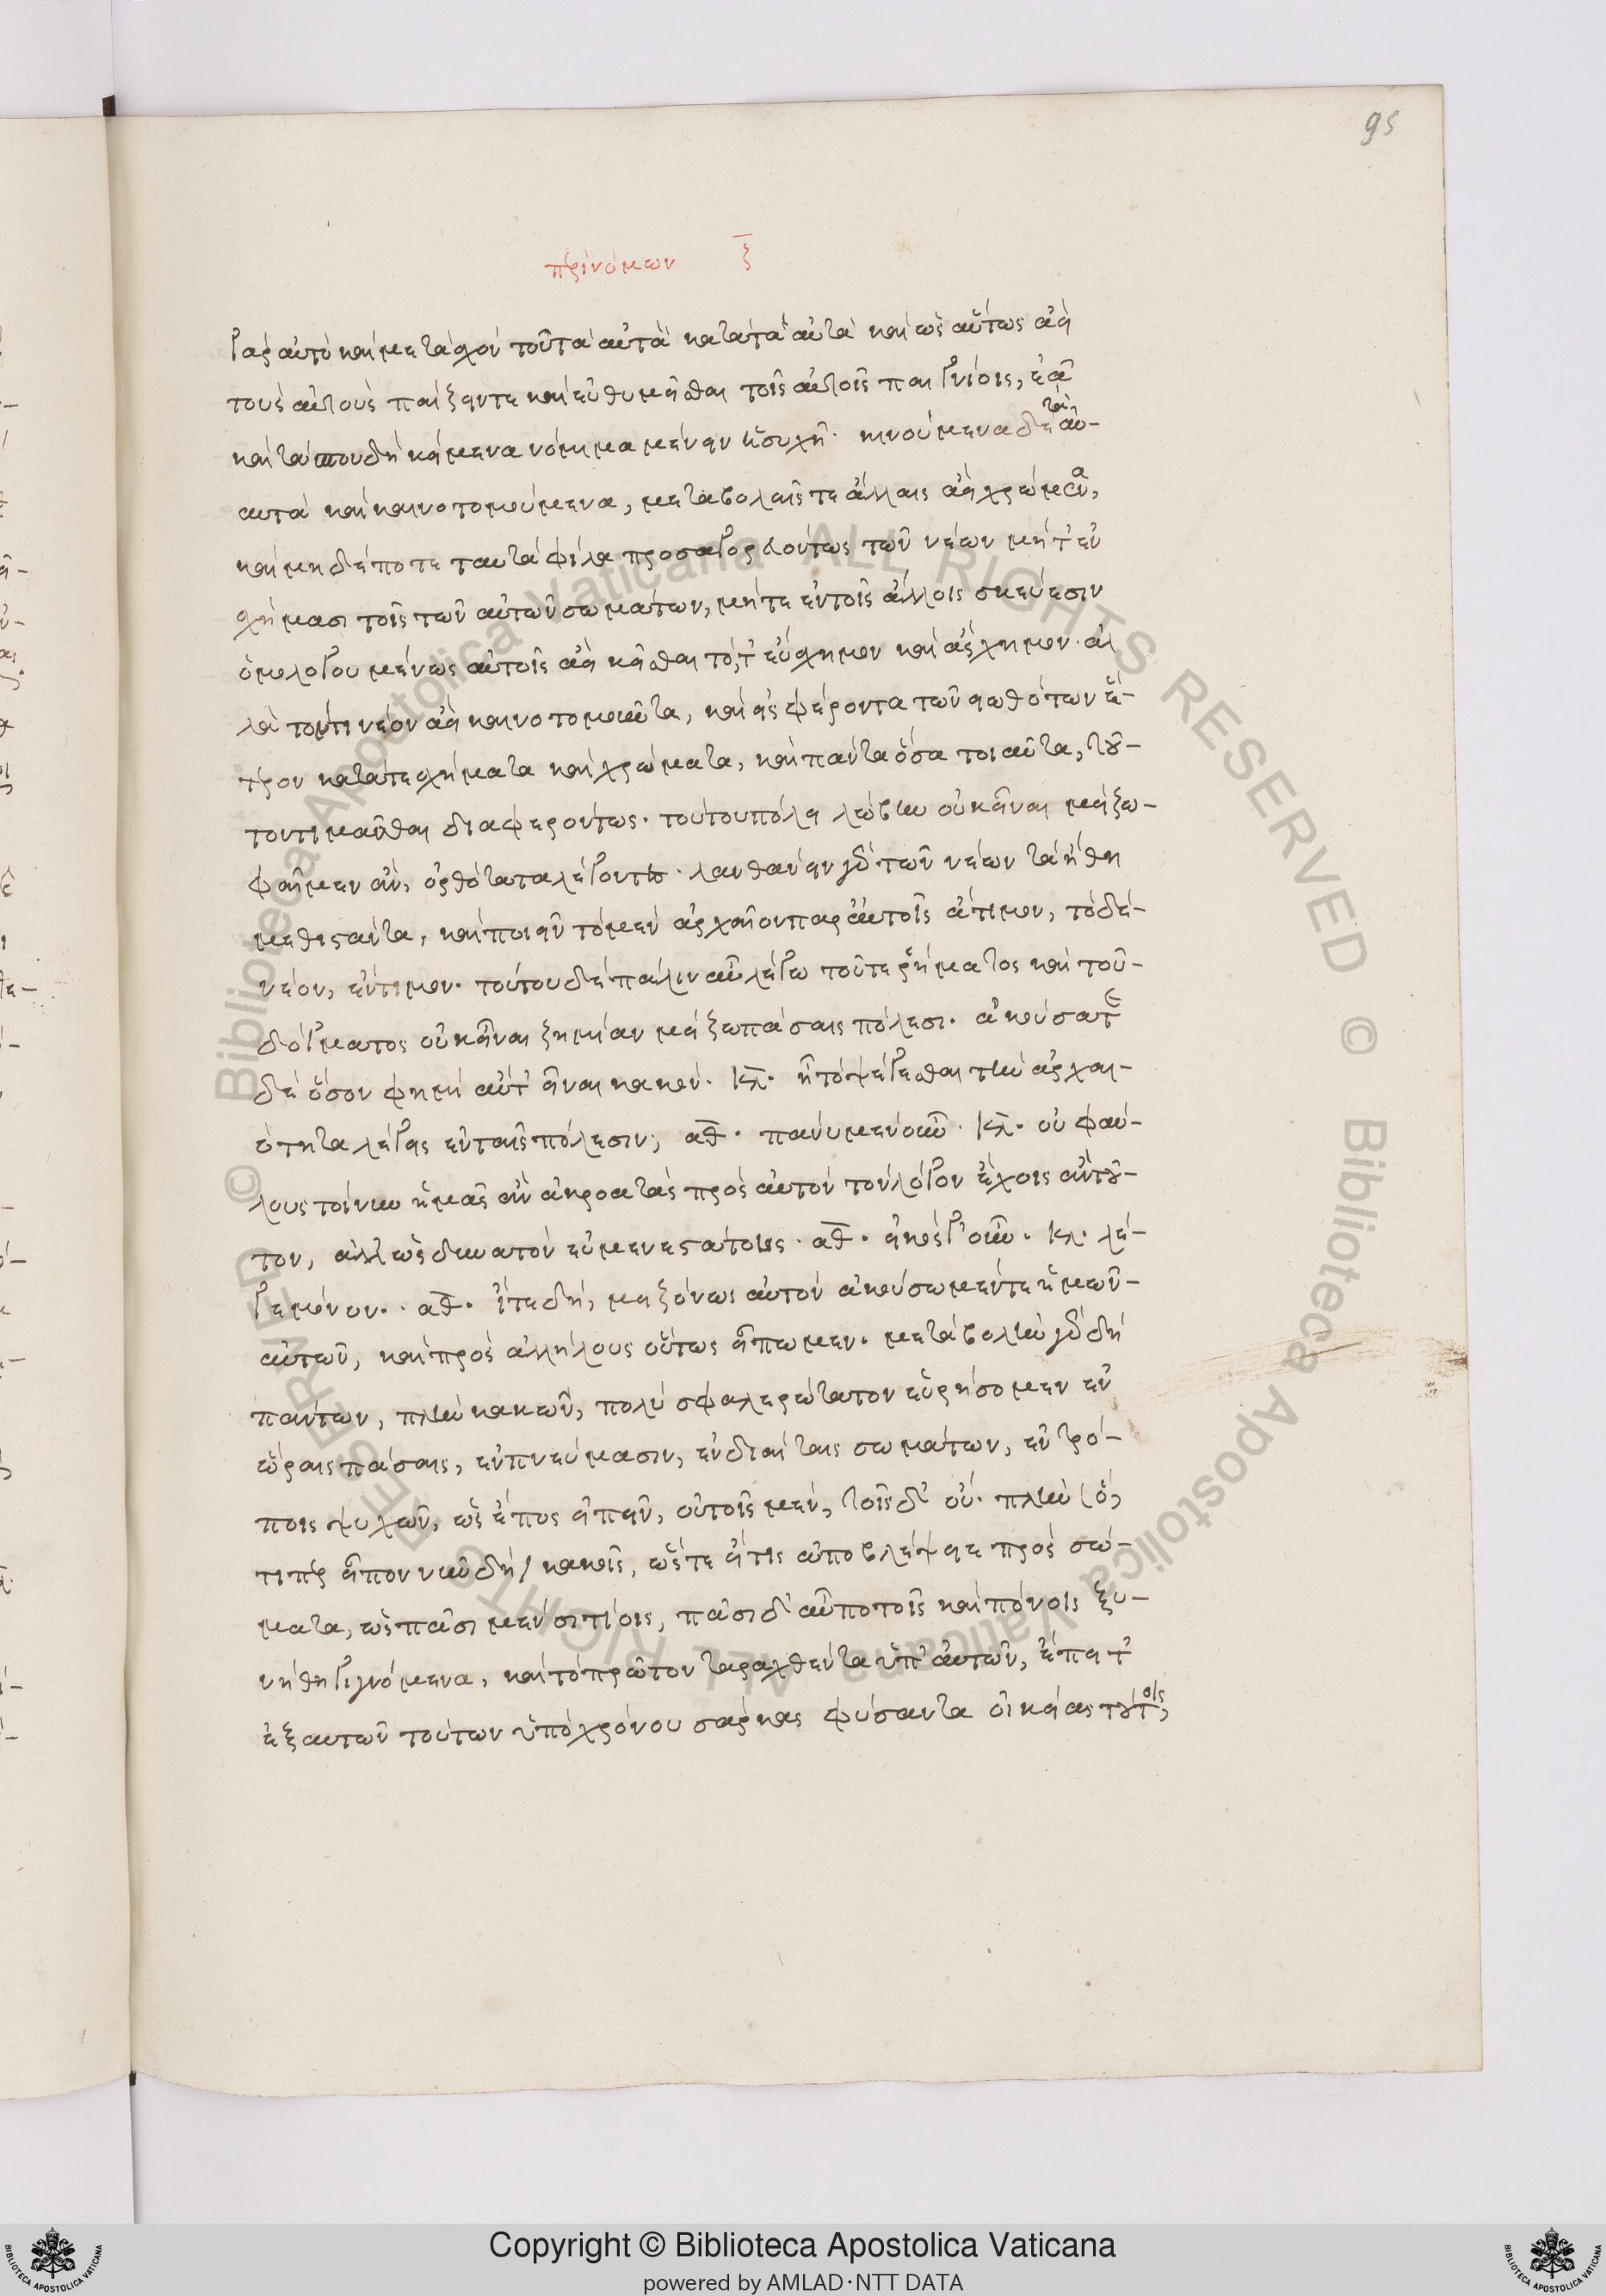 95
περὶ νόμων ζ
γὰρ αὐτὸ καὶ μετασχὸν τοῦ τὰ αὐτὰ κατὰ τὰ αὐτὰ καὶ ὡσαύτως ἀεὶ
τοὺς αὐτοὺς παίζειν τε καὶ εὐθυμεῖσθαι τοῖς αὐτοῖς παιγνίοις, ἐᾶ
καὶ τὰ σπουδῇ κείμενα νόμιμα μένειν ἡσυχῇ· κινούμενα δὲ τὰ αὐ-
αυτὰ καὶ καινοτομούμενα, μεταβολαῖς τε ἄλλαις ἀεὶ χρώμενα,
καὶ μηδέποτε ταυτὰ φίλα προσαγορευόντως τῶν νέων μήτ' ἐν
σχήμασι τοῖς τῶν αὐτῶν σωμάτων, μήτε ἐν τοῖς ἄλλοις σκεύεσιν
ὁμολογουμένως αὐτοῖς ἀεὶ κεῖσθαι τό, τ' εὔσχημον καὶ ἄσχημον· ἀλ
λὰ τόν τι νέον ἀεὶ καινοτομοῦντα, καὶ εἰσφέροντα τῶν εἰωθότων ἕ-
τερον κατά τε σχήματα καὶ χρώματα, καὶ πάντα ὅσα τοιαῦτα, τοῦ-
τον τιμᾶσθαι διαφερόντως· τούτου πόλει λώβην οὐκ εἶναι μείζω-
φαῖμεν ἂν, ὀρθότατα λέγοντες· λανθάνειν γὰρ τῶν νέων τὰ ἤθη
μεθιστάντα, καὶ ποιεῖν τὸ μὲν ἀρχαῖον παρ' αὐτοῖς ἄτιμον, τὸ δὲ-
νέον, ἔντιμον· τούτου δὲ πάλιν αὖ λέγω τοῦ τε ῥήματος καὶ τοῦ-
δόγματος οὐκ εἶναι ζημίαν μείζω πάσαις πόλεσι· ἀκούσατε
δὲ ὅσον φημὶ αὔτ' εἶναι κακόν· κλ· ἦ τὸ ψέγεσθαι τὴν ἀρχαι-
ότητα λέγεις ἐν ταῖς πόλεσιν; αθ· πάνυ μὲν οὖν· κλ· οὐ φαύ-
λους τοίνυν ἡμᾶς ἂν ἀκροατὰς πρὸς αὐτὸν τὸν λόγον ἔχοις ἂν τοῦ-
τον, ἀλλ' ὡς δυνατὸν εὐμενεστάτους· αθ· εἰκὸς γοῦν· κλ· λέ-
γε μόνον·· αθ· ἴτε δή, μειζόνως αὐτὸν ἀκούσωμέν τε ἡμῶν-
αὐτῶν, καὶ πρὸς ἀλλήλους οὕτως εἴπωμεν· μεταβολὴν γὰρ δὴ
πάντων, πλὴν κακῶν, πολὺ σφαλερώτατον εὑρήσομεν ἐν
ὥραις πάσαις, ἐν πνεύμασιν, ἐν διαίταις σωμάτων, ἐν τρό-
ποις ψυχῶν, ὡς ἔπος εἰπεῖν, οὐ τοῖς μὲν, τοῖς δ' οὔ· πλὴν (ὅ,
τι περ εἶπον νῦν δὴ) κακοῖς, ὥστε εἴ τις ἀποβλέψειε πρὸς σώ-
ματα, ὡς πᾶσι μὲν σιτίοις, πᾶσι δ' αὖ ποτοῖς καὶ πόνοις ξυ-
νήθη γιγνόμενα, καὶ τὸ πρῶτον ταραχθέντα ὑπ' αὐτῶν, ἔπειτ'
ἐξ αυτῶν τούτων ὑπὸ χρόνου σάρκας φύσαντα οἰκείας τούτοις,
© Biblioteca Apostolica Vaticana ALL RIGHTS RESERVED © Biblioteca Apostolica Vaticana ALL RIGHTS RESERVED
Copyright © Biblioteca Apostolica Vaticana
powered by AMLAD·NTT DATA
BIBLIOTECA APOSTOLICA VATICANA
BIBLIOTECA APOSTOLICA VATICANA